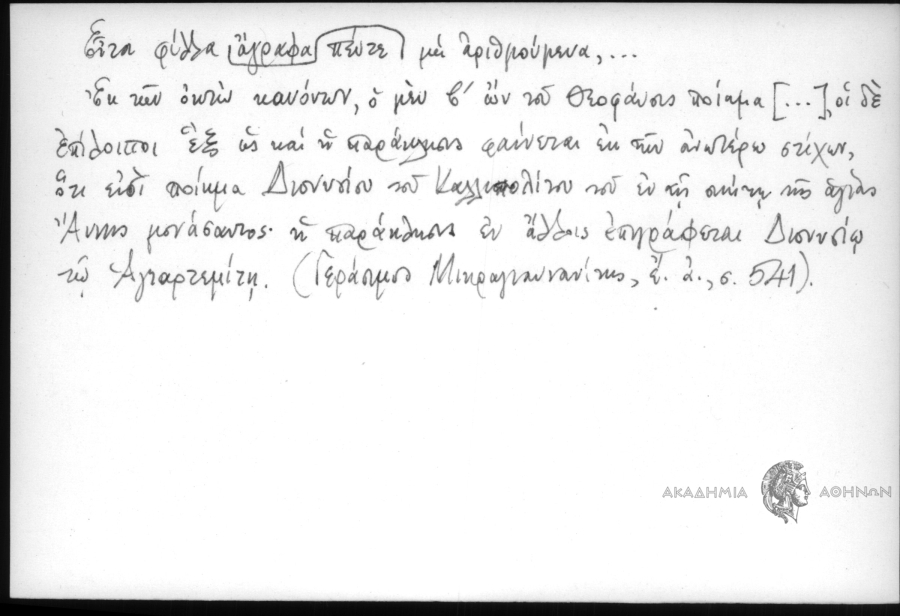 Εἶτα φύλλα ἄγραφα πέντε μὴ ἀριθμούμενα, ...
Ἐκ τῶν ὀκτὼ κανόνων, ὁ μὲν β' ὢν τοῦ Θεοφάνους ποίημα [...], οἱ δὲ
ἐπίλοιποι ἓξ ὡς καὶ ἡ παράκλησις φαίνεται ἐκ τῶν ἀνωτέρω στίχων,
ὅτι εἰσὶ ποίημα Διονυσίου τοῦ Καλλιπολίτου τοῦ ἐν τῇ σκήτῃ τῆς ἁγίας
Ἄννης μονάσαντος· ἡ παράκλησις ἐν ἄλλοις ἐπιγράφεται Διονυσίῳ
τῷ Ἁγιαρτεμίτῃ. (Γεράσιμο Μικραγιαννανίτης, ἔ. ἀ., σ. 541).
ΑΚΑΔΗΜΙΑ ΑΘΗΝΩΝ